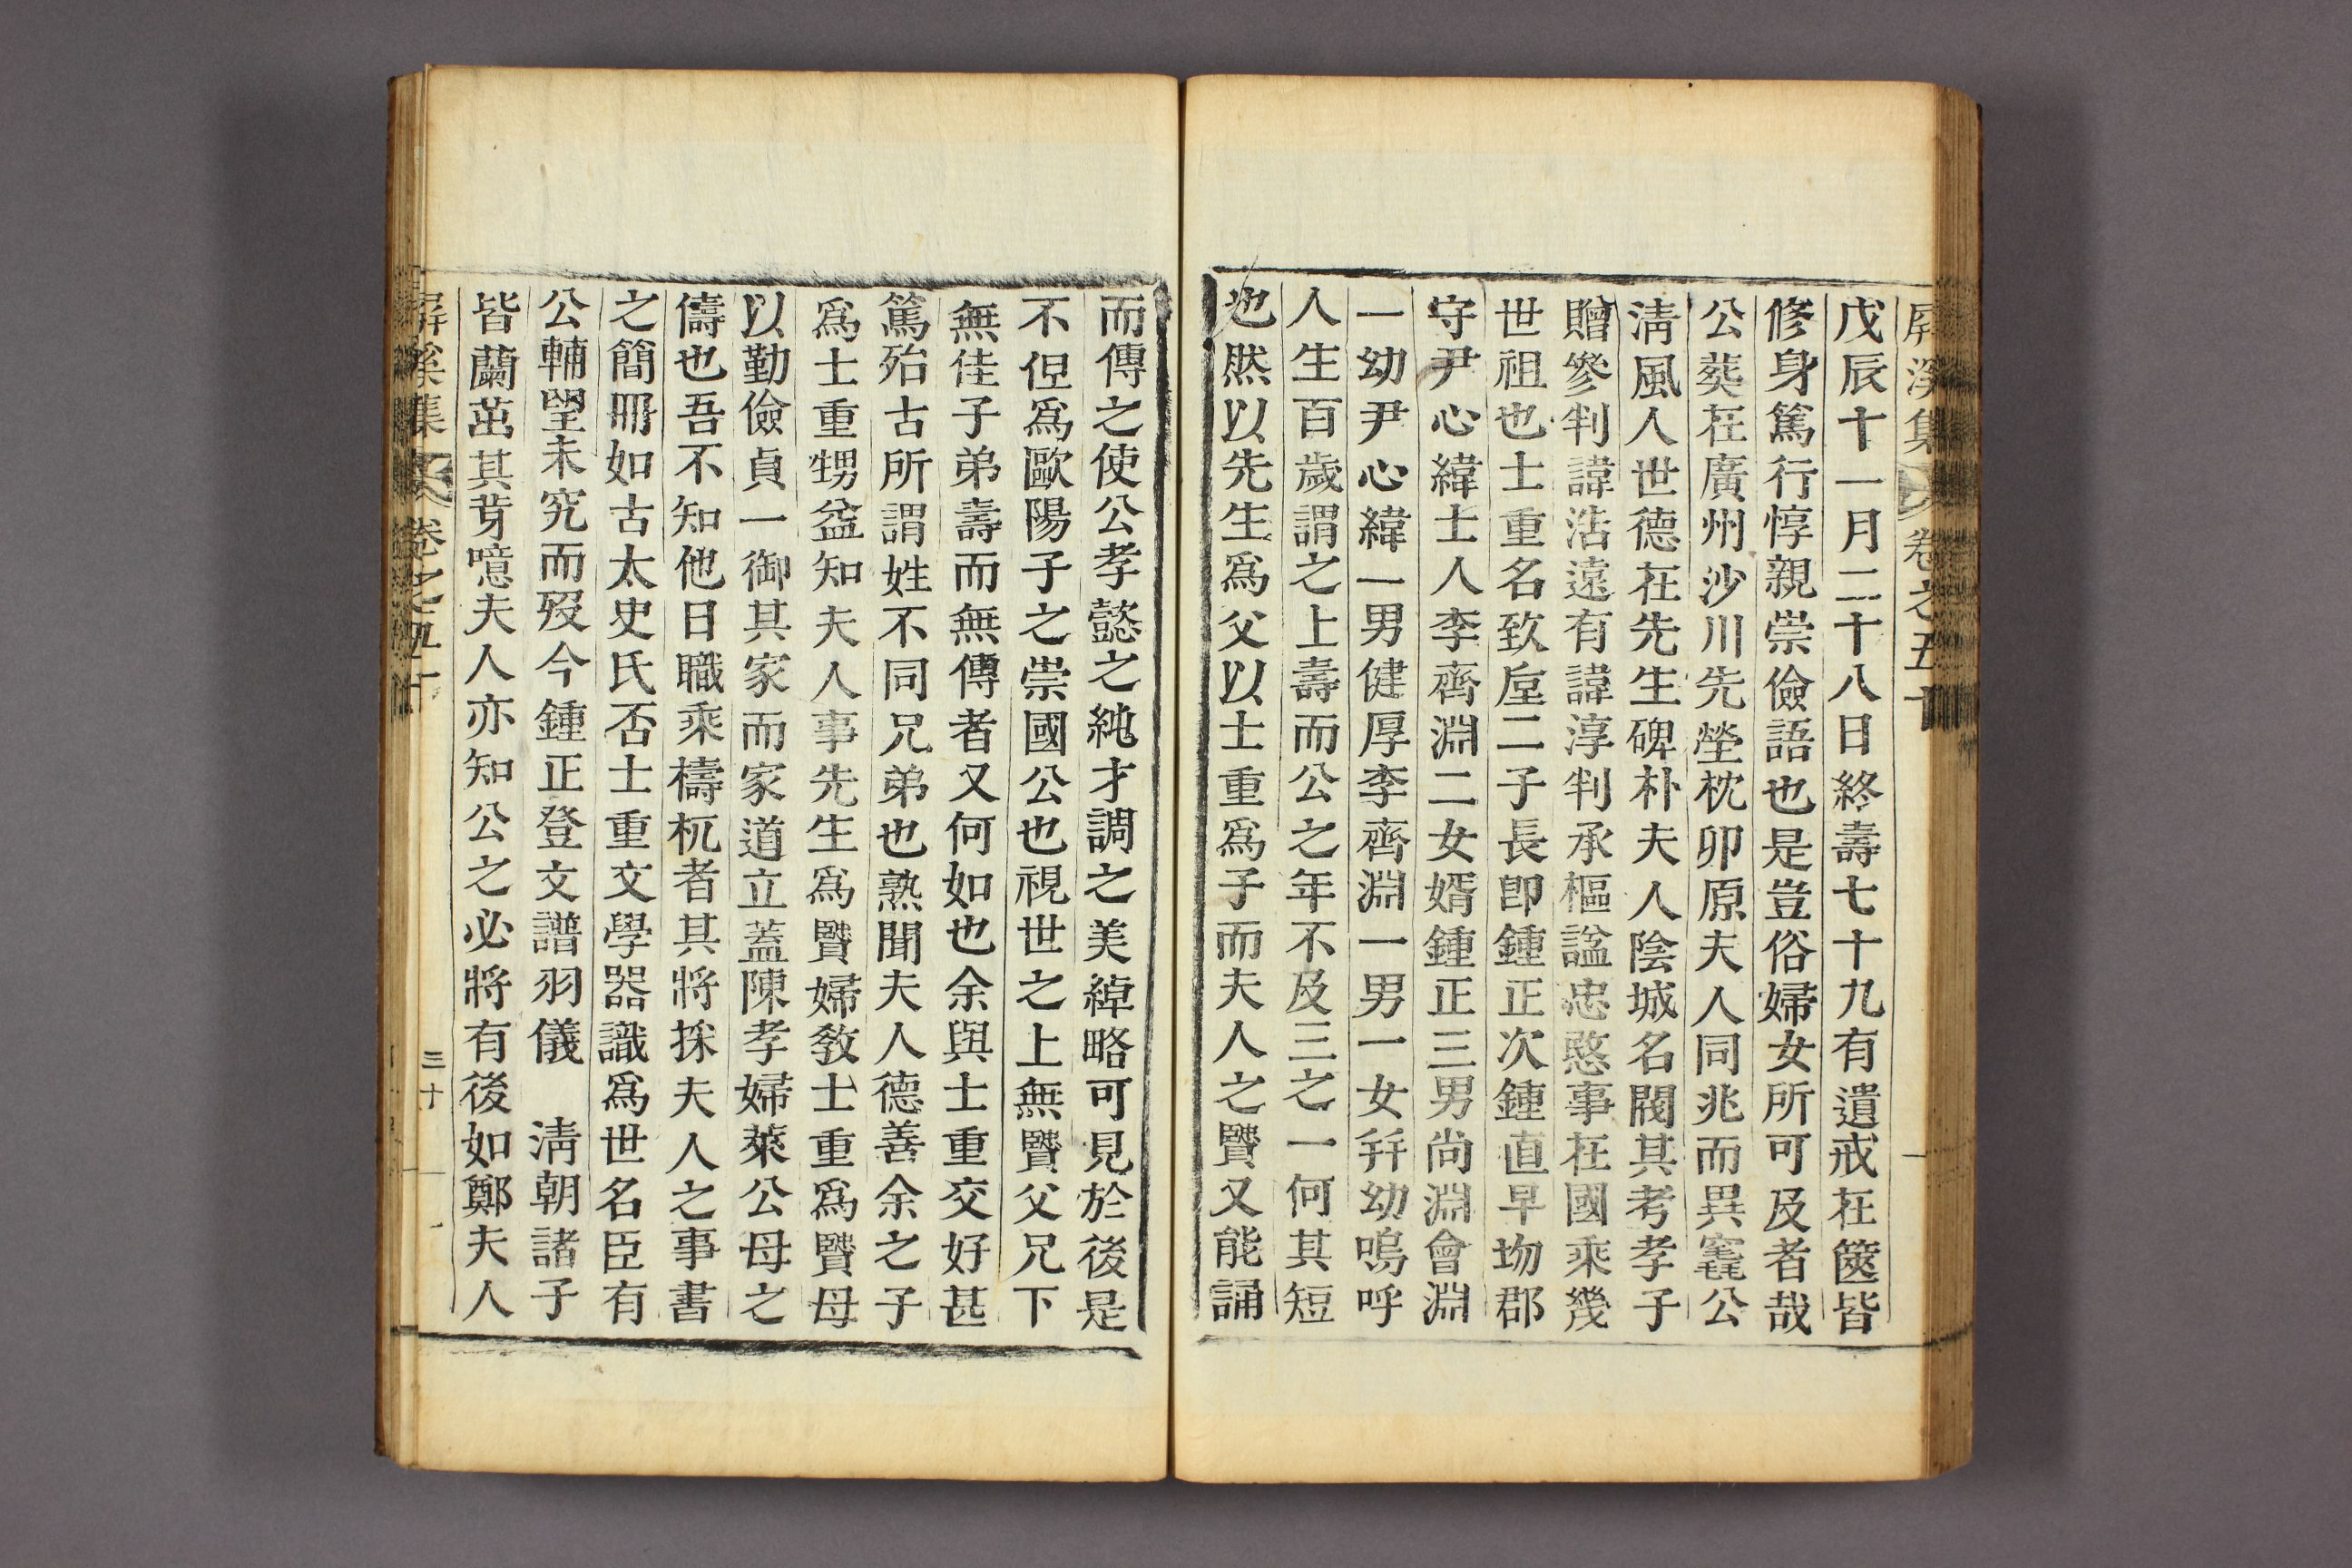 屛溪集 卷之五十
戊辰十一月二十八日終壽七十九有遺戒在篋皆
修身篤行惇親崇儉語也是豈俗婦女所可及者哉
公葬在廣州沙川先塋枕卯原夫人同兆而異窆公
淸風人世德在先生碑朴夫人陰城名閥其考孝子
贈參判諱浩遠有諱淳判承樞諡忠愍事在國乘幾
世祖也士重名致垕二子長卽鍾正次鍾直早歾郡
守尹心緯士人李齊淵二女婿鍾正三男尙淵會淵
一幼尹心緯一男健厚李齊淵一男一女幷幼嗚呼
人生百歲謂之上壽而公之年不及三之一何其短
也然以先生爲父以士重爲子而夫人之賢又能誦
而傳之使公孝懿之純才調之美綽略可見於後是
不但爲歐陽子之崇國公也視世之上無賢父兄下
無佳子弟壽而無傳者又何如也余與士重交好甚
篤殆古所謂姓不同兄弟也熟聞夫人德善余之子
爲士重甥益知夫人事先生爲賢婦敎士重爲賢母
以勤儉貞一御其家而家道立蓋陳孝婦萊公母之
儔也吾不知他日職乘檮杌者其將採夫人之事書
之簡冊如古太史氏否士重文學器識爲世名臣有
公輔望未究而歿今鍾正登文譜羽儀 淸朝諸子
皆蘭茁其芽噫夫人亦知公之必將有後如鄭夫人
屛溪集 卷之五十 三十